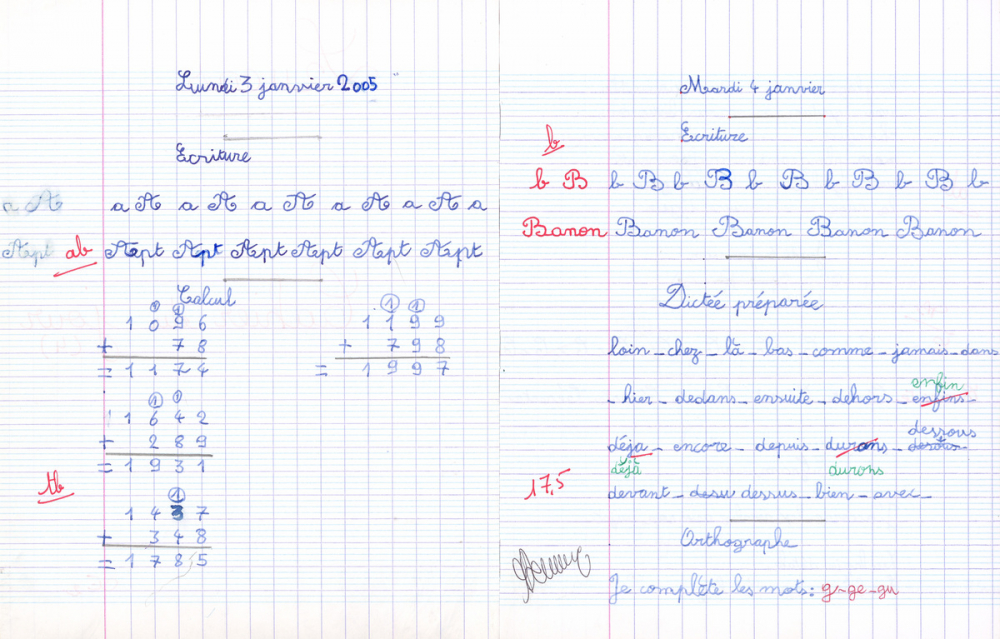 Lundi 3 janvier 2005
Ecriture
a A a A a A a A a A a A a
Apt ab Apt Apt Apt Apt Apt Apt
Calcul
1 1
1 0 9 6
+ 7 8
= 1 1 7 4
1 1
1 6 4 2
+ 2 8 9
= 1 9 3 1
tb
1
1 4 3 7
+ 3 4 8
= 1 7 8 5
1 1
1 1 9 9
+ 7 9 8
= 1 9 9 7
Mardi 4 janvier
b
Ecriture
b B b B b B b B b B b B b
Banon Banon Banon Banon Banon
Dictée préparée
loin - chez - là - bas - comme - jamais - dans
enfin
- hier - dedans - ensuite - dehors - enfins -
dessous
déja - encore - depuis - durons -
déjà durons
17,5
devant - desu dessus - bien - avec -
Orthographe
Je complète les mots : g - ge - gu